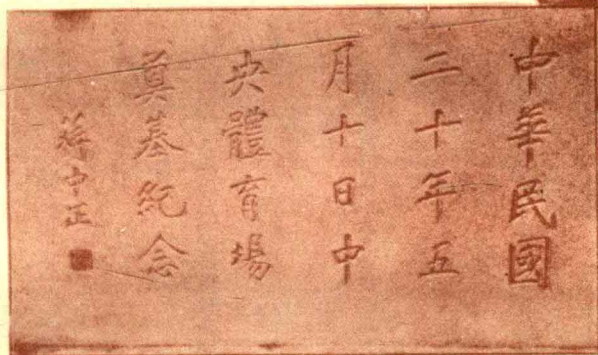 中華民國
二十年五
月十日中
央體育場
奠基紀念
蔣中正